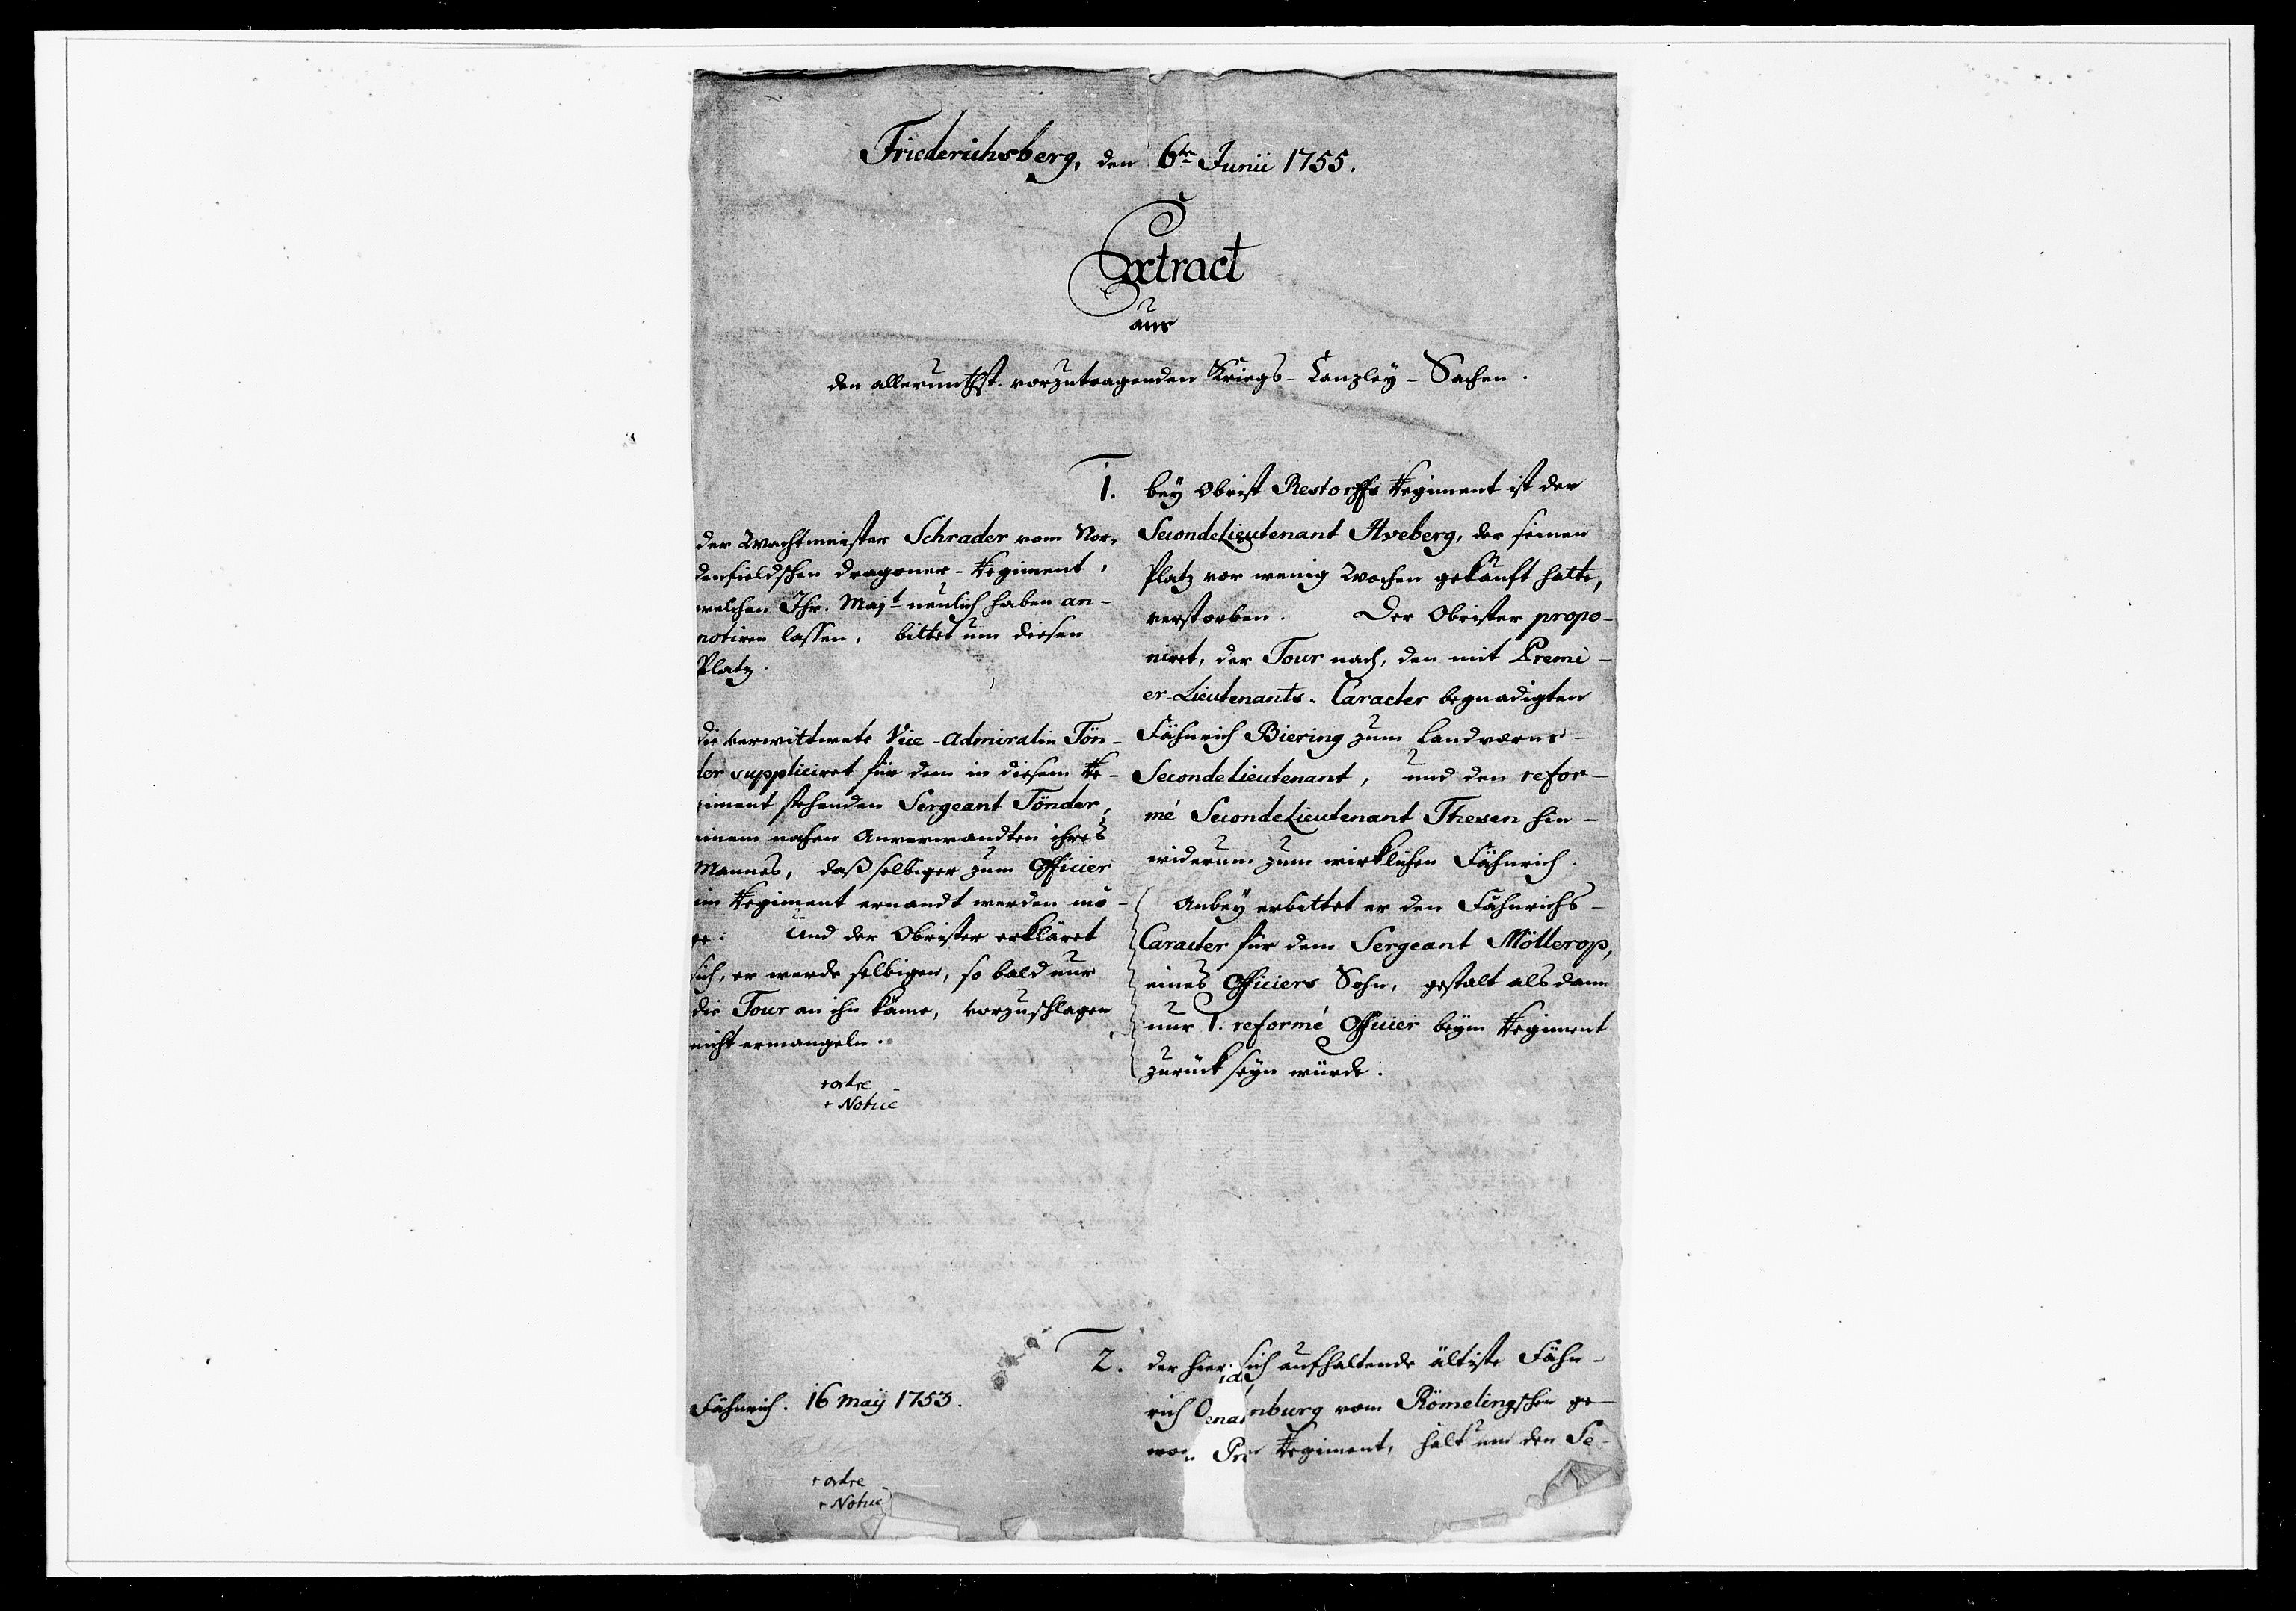 Friederichsberg, den 6ten Junii 1755.
Extract
aus
den allerunthst. vorzutragenden Kriegs-Canzley-Sachen.
1.
bey Obrist Restorffs Regiment ist der
SecondeLieutenant Hveberg, der seinen
Platz vor wenig Wochen gekauft hatte,
verstorben. Der Obrister propo-
niret, der Tour nach, den mit Premi-
er-Lieutenants-Caracter begnadigten
Fähnrich Biering zum Landværns-
SecondeLieutenant, und den refor-
mé SecondeLieutenant Thesen hin-
widerum zum wirklichen Fähnrich.
Anbey erbittet er den Fähnrichs-
Caracter für dem Sergeant Möllerop,
eines Officiers Sohn, gestalt alsdann
nur 1. reformé Officier beym Regiment
zurück seyn würde.
der Wachtmeister Schrader vom Nor-
denfieldschen Dragoner-Regiment,
welchen Ihr. Majt neulich haben an-
notiren lassen, bittet um diesen
Platz.
die verwittwete Vice-Admiralin Tön-
der suppliciret für dem in diesem Re-
giment stehenden Sergeant Tönder,
einem nahen Anverwandten ihres
Mannes, daß selbiger zum Officier
im Regiment ernandt werden mö-
ge: Und der Obrister erkläret
sich, er werde selbigen, so bald nur
die Tour an ihn käme, vorzuschlagen
nicht ermangeln.
+ ordre
+ Notice
2.
der hier sich aufhaltende ältiste Fähn-
rich nburg vom Römelingschen ge-
Regiment, hält um den Se-
Fähnrich. 16 Maÿ 1753.
+ ordre
+ Notice